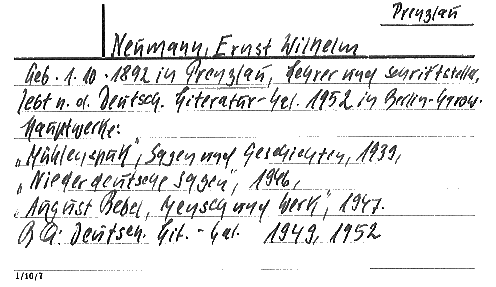 Prenzlau
Neumann, Ernst Wilhelm
Geb. 1.10.1892 in Prenzlau, Lehrer und Schriftsteller,
lebt n. d. Deutsch. Literatur-Kal. 1952 in Berlin-Grünau.
Hauptwerke:
„Mühlenspuk", Sagen und Geschichten, 1939,
„Niederdeutsche Sagen", 1946,
„August Bebel, Mensch und Werk", 1947.
B Q: Deutsch. Lit.-Kal. 1949, 1952
1/10/7